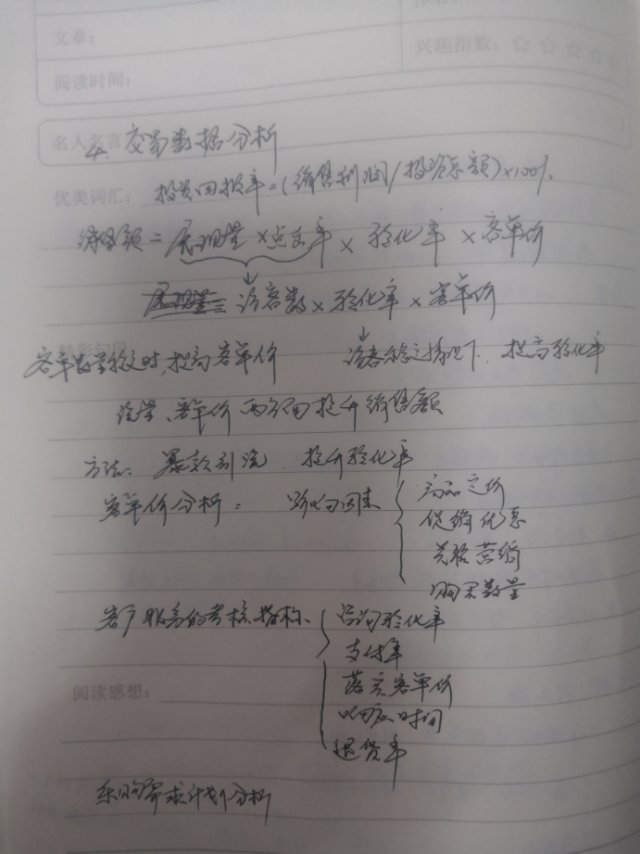 文章：
兴趣指数：☆ ☆ ☆ ☆ ☆
阅读时间：
名人名言
4. 交易数据分析
优美词汇：
投资回报率=(销售利润/投资总额)×100%.
销售额 = 展现量 × 点击率 × 转化率 × 客单价
访客数 × 转化率 × 客单价
精彩句段
时, 提高客单价
访客稳定情况下, 提高转化率
流量、客单价 两方面提升销售额
方法: 爆款引流, 提升转化率
客单价分析: 影响因素
商品定价
促销优惠
关联营销
购买数量
客户服务的考核指标
咨询转化率
支付率
落实客单价
响应时间
退货率
阅读感想：
采购需求计划分析